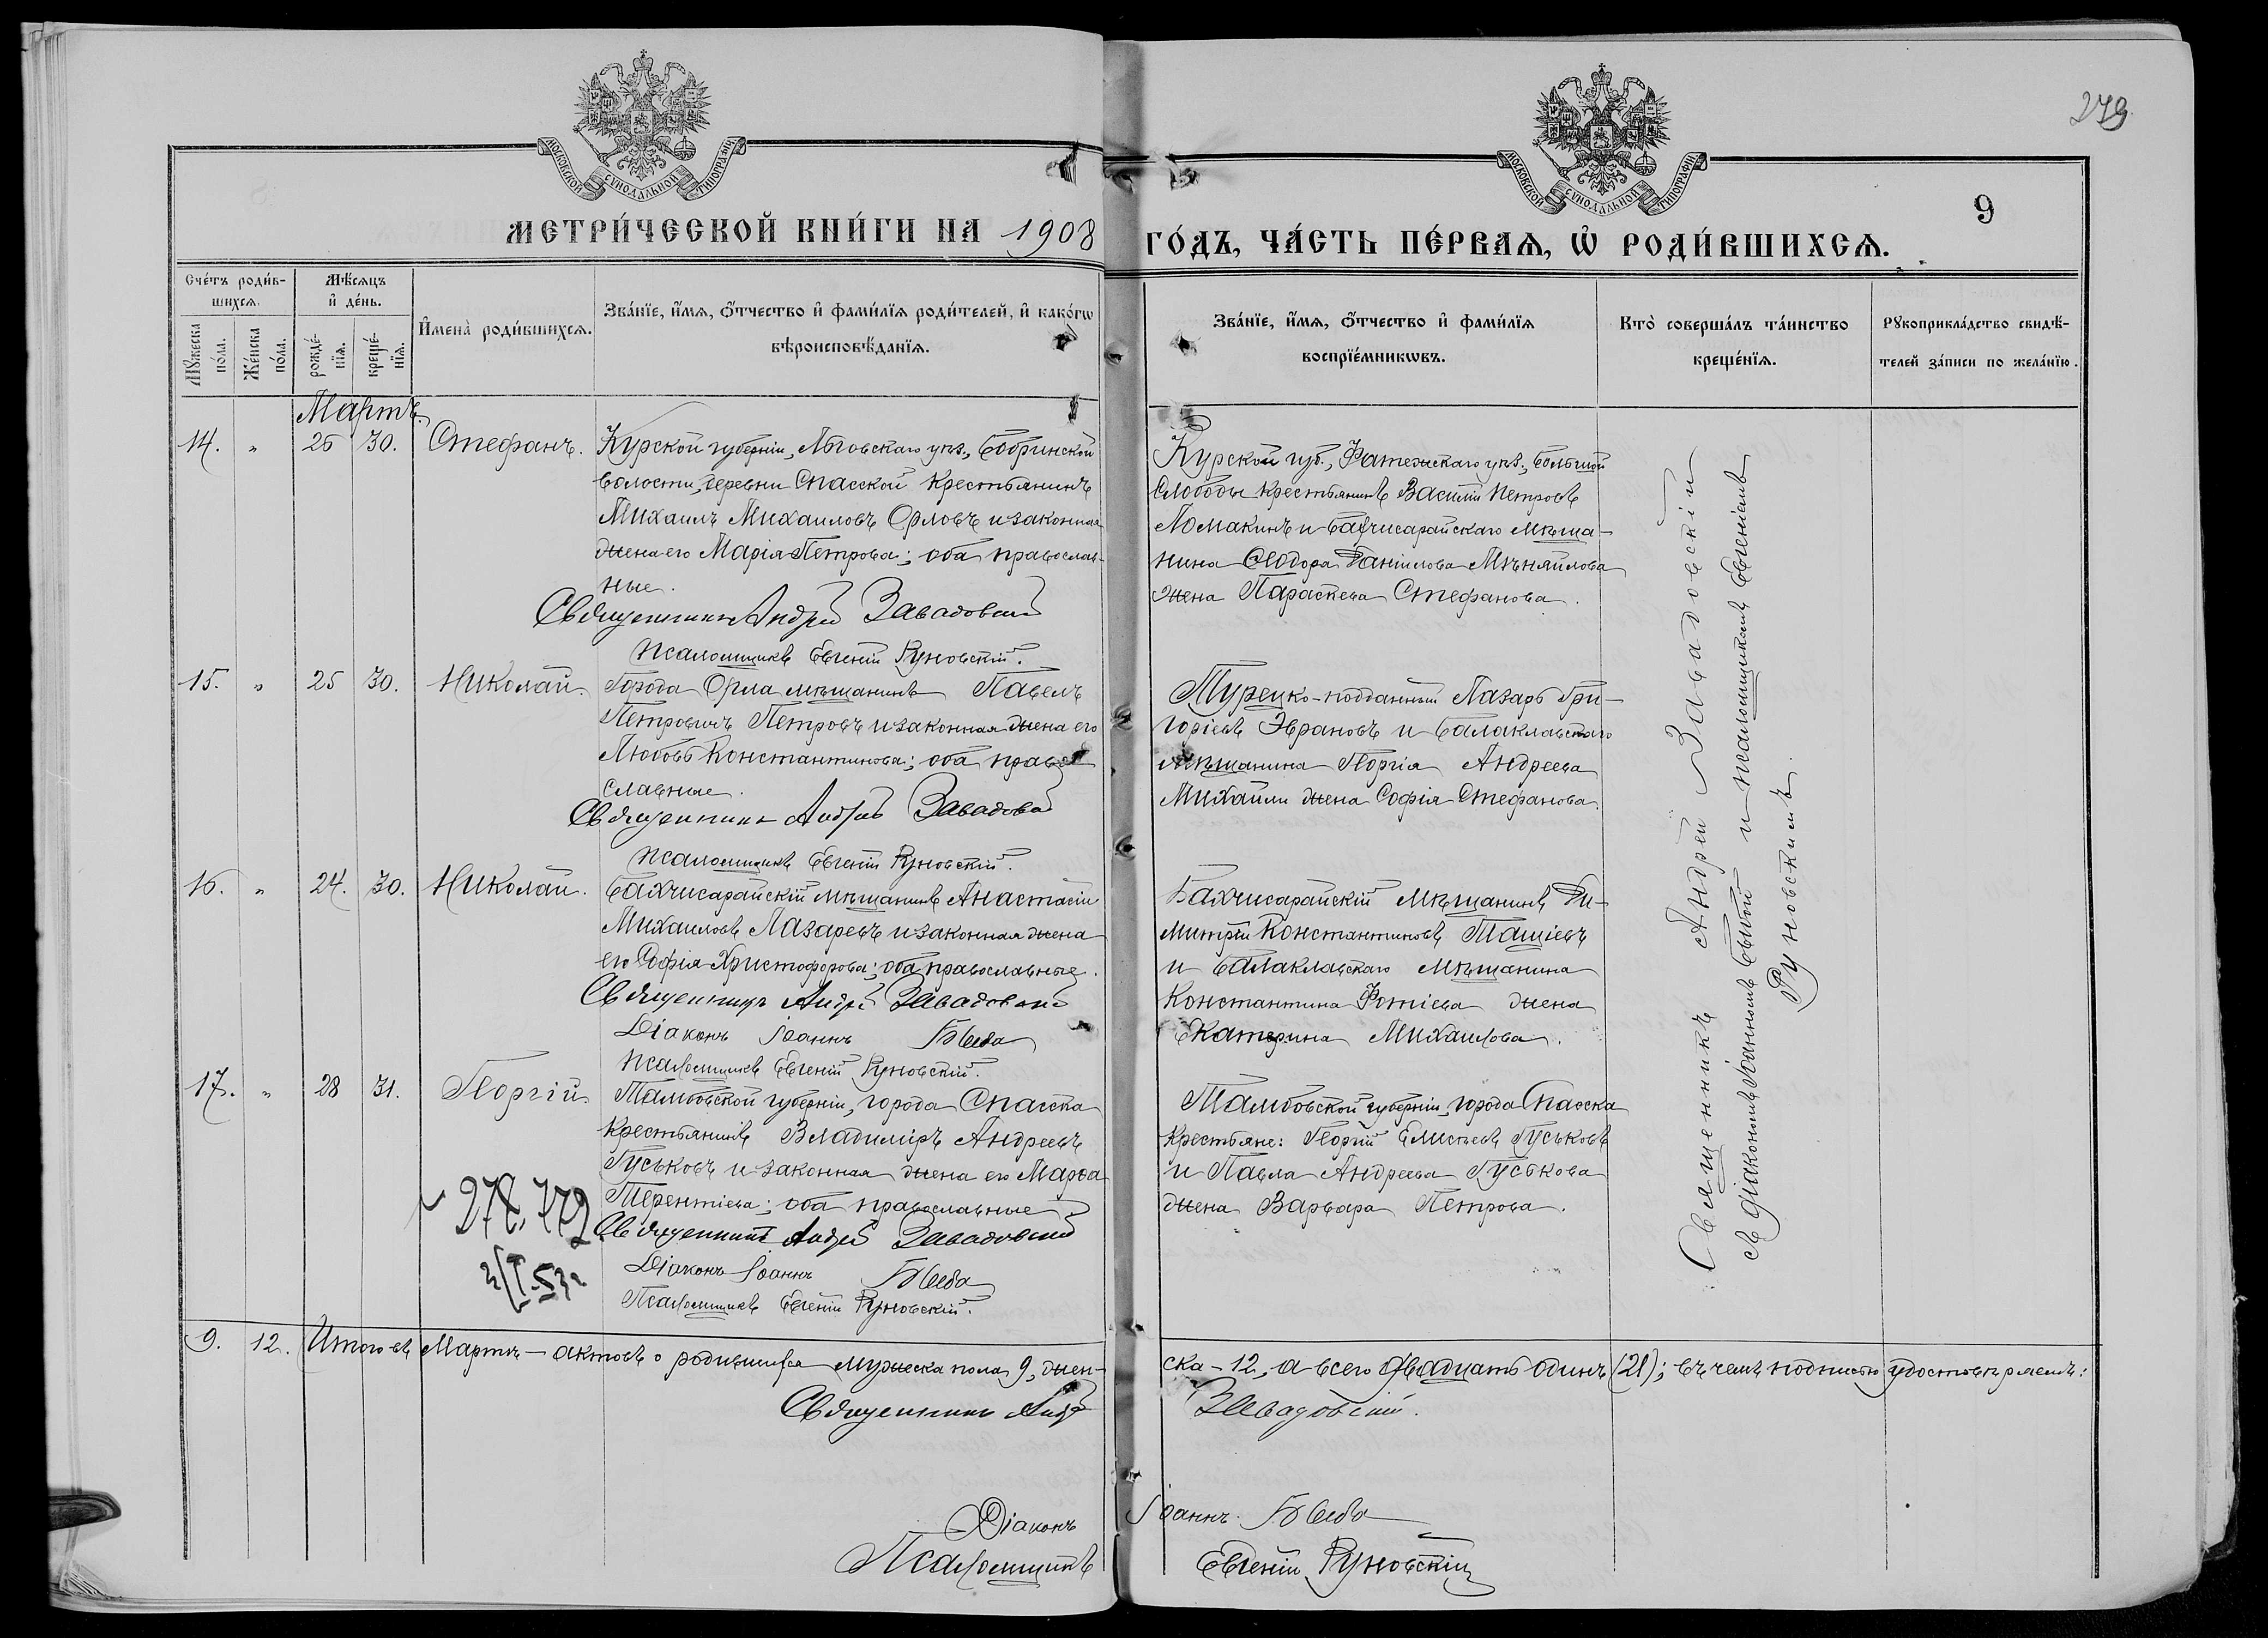 279
МОСКОВСКОЙ СУНОДАЛЬНОЙ ТИПОГРАФІИ
МОСКОВСКОЙ СУНОДАЛЬНОЙ ТИПОГРАФІИ
9
МЕТРИ́ЧЕСКОЙ КНИ́ГИ НА 1908
ГО́ДЪ, ЧА́СТЬ ПЕ́РВАѦ, Ѡ҆ РОДИ́ВШИХСѦ.
Сче́тъ роди́в-
шихсѧ.
Мѣ́сѧцъ
и҆ де́нь.
Мꙋ́жеска по́ла.
Же́нска по́ла.
рожде́-нїѧ.
креще́-нїѧ.
И҆мена̀ роди́вшихсѧ.
Зва́нїе, и҆́мѧ, ѻ҆́тчество и҆ фами́лїѧ роди́телей, и҆ како́гѡ
вѣроисповѣ́данїѧ.
Зва́нїе, и҆́мѧ, ѻ҆́тчество и҆ фами́лїѧ
воспрїе́мникѡвъ.
Кто̀ соверша́лъ та́инство
креще́нїѧ.
Рꙋкоприкла́дство свидѣ́-
телей за́писи по жела́нїю.
Мартъ.
14. „ 25 30. Стефанъ.
Курской губерніи, Льговскаго уѣз., Бобринской
волости, деревни Спасской крестьянинъ
Михаилъ Михаиловъ Орловъ и законная
жена его Марія Петрова; оба православ-
ные.
Священникъ Андрей Завадовскій
Псаломщикъ Евгеній Руновскій.
Курской губ., Фатежскаго уѣз., Большой
Слободы крестьянинъ Василій Петровъ
Ломакинъ и Бахчисарайскаго мѣща-
нина Ѳеодора Даніилова Мѣняйлова
жена Параскева Стефанова.
15. „ 25 30. Николай.
Города Орла мѣщанинъ Павелъ
Петровичъ Петровъ и законная жена его
Любовь Константинова; оба право-
славные.
Священникъ Андрей Завадовскій
Псаломщикъ Евгеній Руновскій.
Турецко-подданный Лазарь Гри-
горіевъ Эврановъ и Балаклавскаго
мѣщанина Георгія Андреева
Михайли жена Софія Стефанова.
16. „ 24. 30. Николай.
Бахчисарайскій мѣщанинъ Анастасій
Михаиловъ Лазаревъ и законная жена
его Софія Христофорова; оба православные.
Священникъ Андрей Завадовскій
Діаконъ Іоаннъ
Псаломщикъ Евгеній Руновскій.
Бахчисарайскій мѣщанинъ Ди-
митрій Константиновъ Ташіевъ
и Балаклавскаго мѣщанина
Константина Фотіева жена
Екатерина Михаилова.
17. „ 28 31. Георгій.
Тамбовской губерніи, города Спасска
крестьянинъ Владиміръ Андреевъ
Гуськовъ и законная жена его Марѳа
Терентіева; оба православные
Священникъ Андрей Завадовскій
Діаконъ Іоаннъ
Псаломщикъ Евгеній Руновскій.
Тамбовской губерніи, города Спасска
крестьяне: Георгій Елисѣевъ Гуськовъ
и Павла Андреева Гуськова
жена Варвара Петрова.
Священникъ Андрей Завадовскій
съ діакономъ Іоанномъ и псаломщикомъ Евгеніемъ
Руновскимъ.
9. 12. Итого въ Мартѣ — актовъ о родившихся мужеска пола 9, жен-
ска – 12, а всего двадцать одинъ (21); въ чемъ подписью удостовѣряемъ:
Священникъ Андрей Завадовскій.
Діаконъ Іоаннъ
Псаломщикъ Евгеній Руновскій